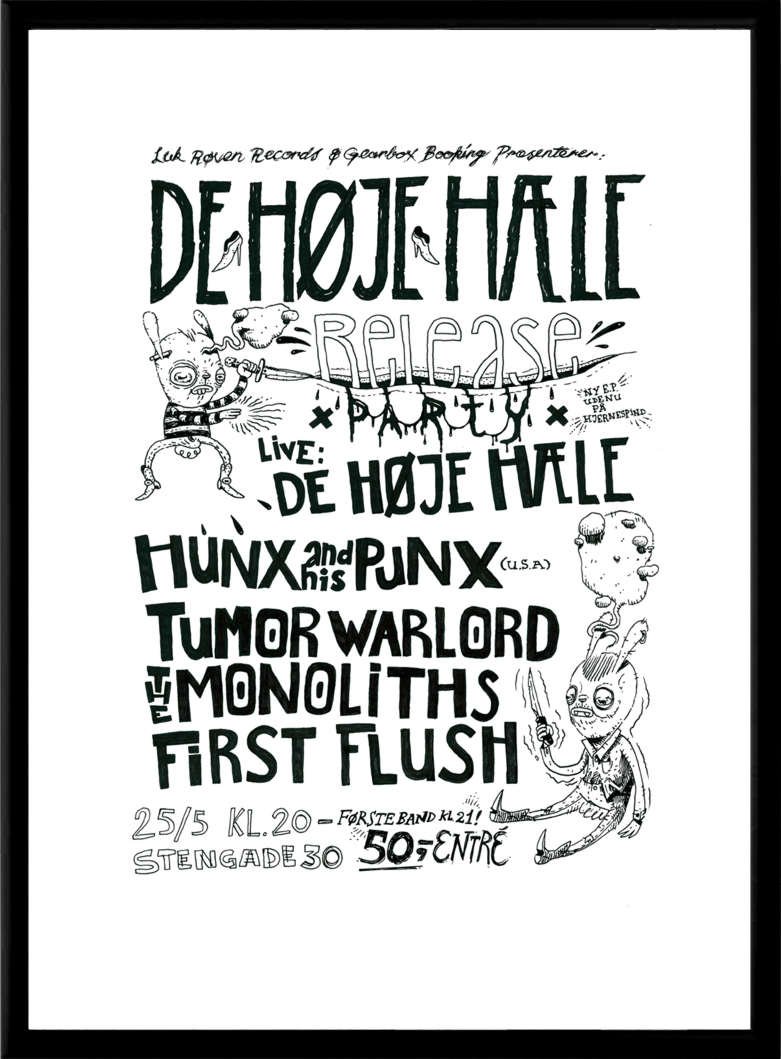 Luk Røven Records & Gearbox Booking Præsenterer:
DE HØJE HÆLE
Release
PARTY
NY E.P.
UDE NU
PÅ
HJERNESPIND
LiVE:
DE HØJE HÆLE
HUNX and his PUNX (U.S.A)
TUMOR WARLORD
THE MONOLiTHS
FiRST FLUSH
25/5 KL.20 – FØRSTE BAND KL 21!
STENGADE 30 50,- ENTRÉ